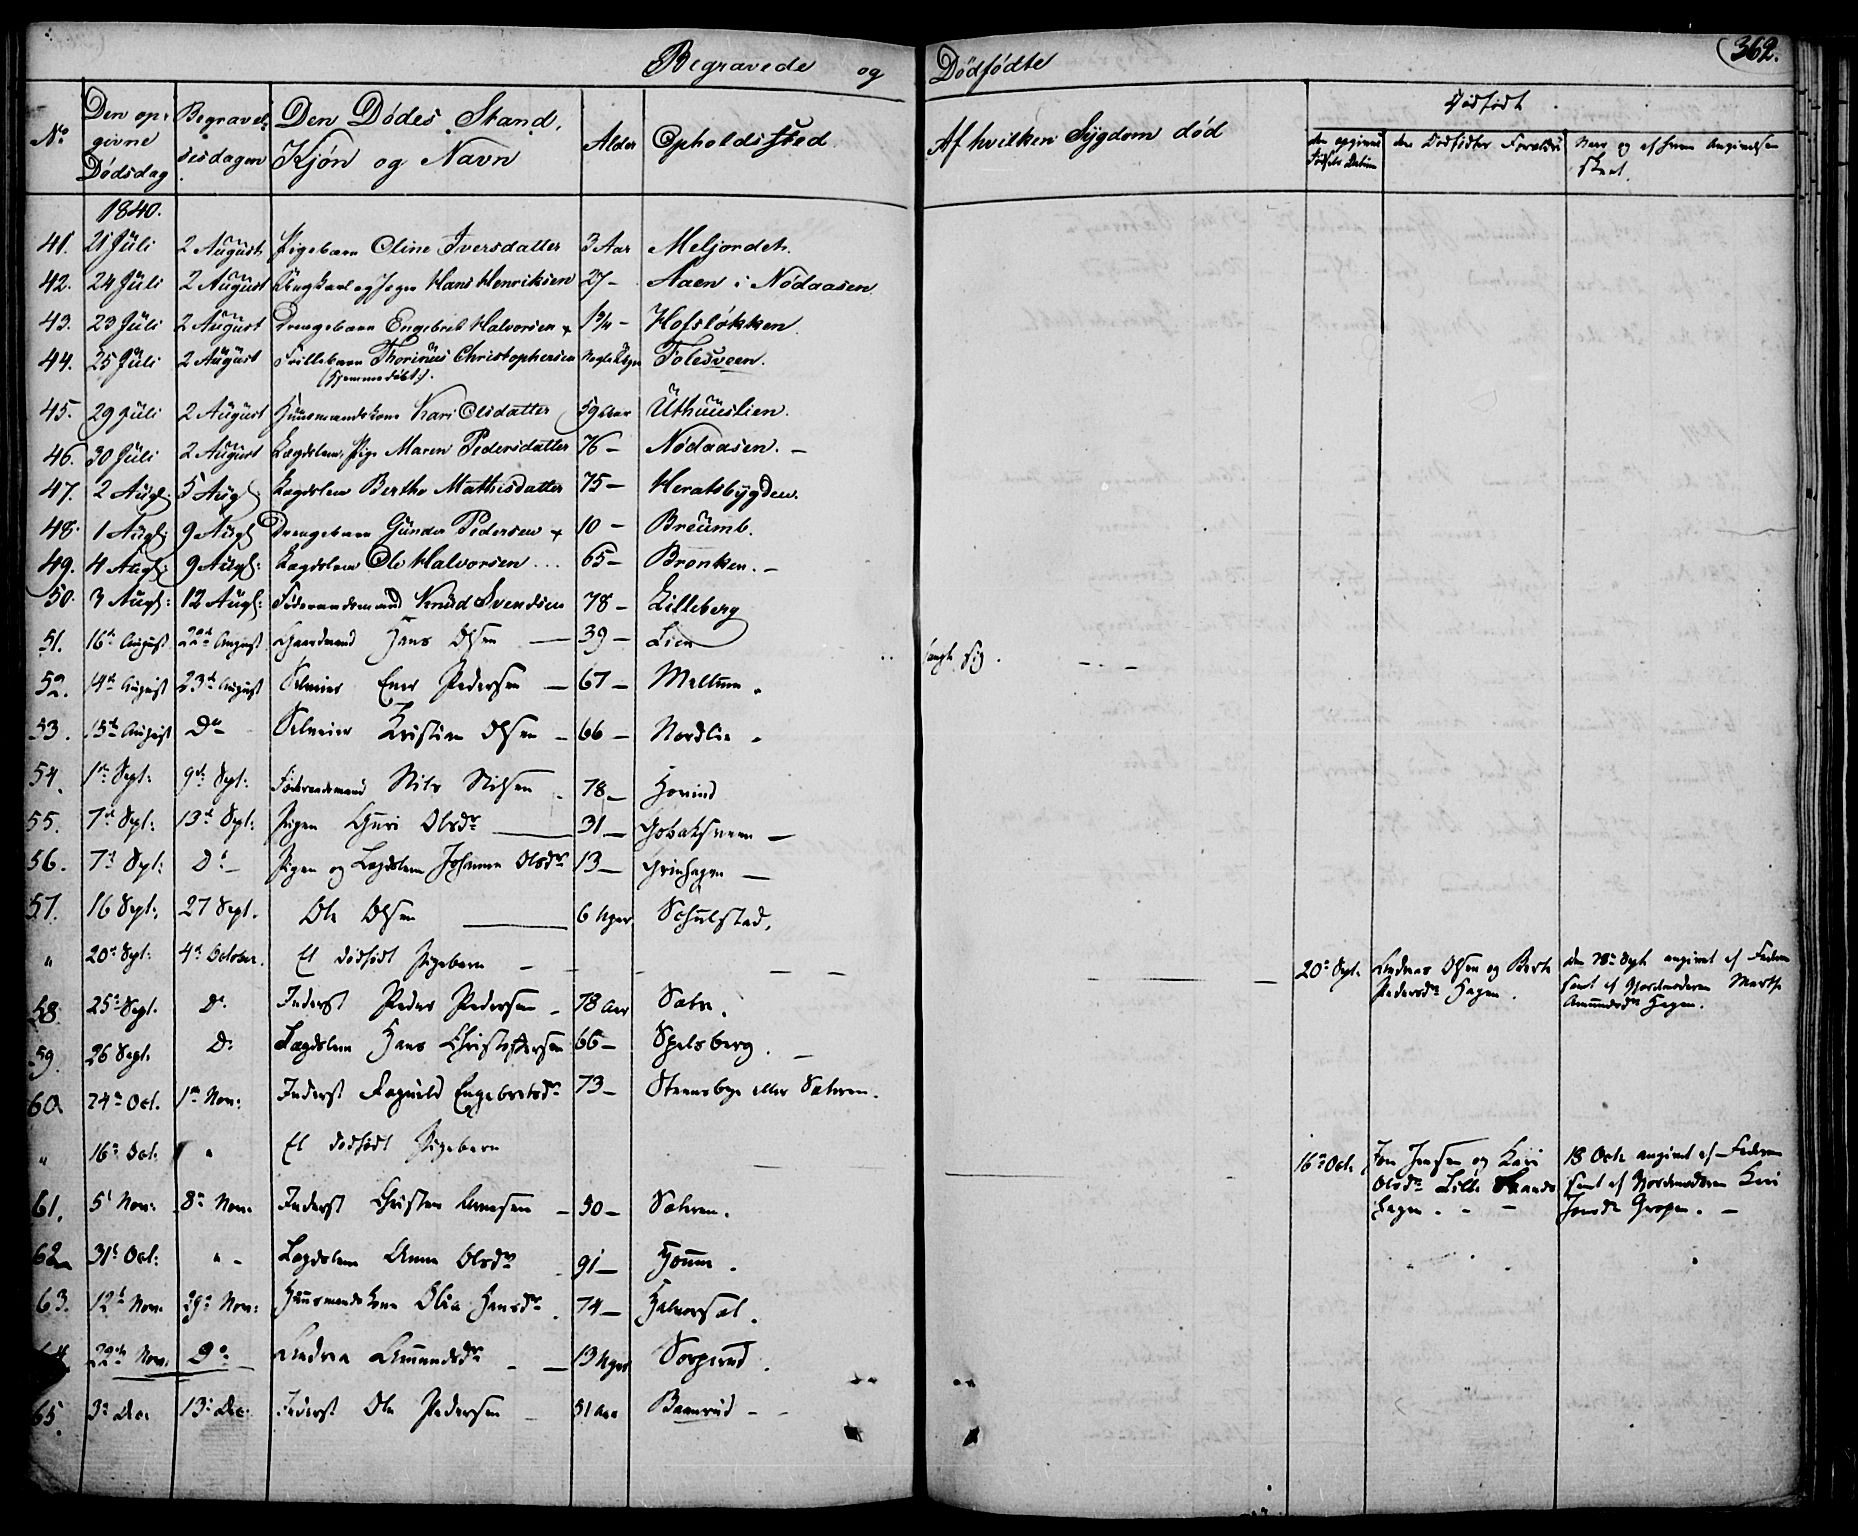 Begravede og Dödfödte
362.
No
Den opgivne Dødsdag
Begravelsesdagen
Den Dødes Stand, Kjøn og Navn
Alder
Opholdssted
Af hvilken Sygdom död
Dødfødt
den opgivne Fødsels Datum
den Dødfødtes Forældre
Naar og af hvem Angivelsen skeet.
1840.
41. 21 Juli 2 August Pigebarn Oline Iversdatter 3 Aar Meljordet.
42. 24 Juli 2 August Ungkarl og Jæger Hans Henriksen 27 - Aaen i Nödaasen
43. 23 Juli 2 August Drengebarn Engebret Halvorsen Hofslökken.
44. 25 Juli 2 August Tvillebarn Thorinus Christophersen Nogle Uger Tolesveen.
(hjemmedøbt).
45. 29 Juli 2 August Huusmandskone Kari Olsdatter 59 Aar Uthuuslien.
46. 30 Juli 2 August Lægdslem, Pige Maren Pedersdatter 76 - Nödaasen. -
47. 2 Augs: 5 Augs: Lægdslem Berthe Mathisdatter 75 - Heratsbygden.
48. 1 Augs: 9 Augs: Drengebarn Gunder Pedersen 10 - Breumb.
49. 4 Augs: 9 Augs: Lægdslem Ole Halvorsen ... 65 - Bronken. -
50. 3 Augs: 12 Augs: Föderaadsmand Knud Svendsen 78 - Lilleberg
51. 16de August 22de August Gaardmand Hans Olsen 39 - Lien
hængt sig.
52. 14de August 23de August Selveier Ener Pedersen - 67 - Meltum.
53. 15de August Do Selveier Kristian Olsen - 66 - Nordlie.
54. 1de Sept: 9de Sept: Föderaadsmand Nils Nilsen 78 - Hovind
55. 7de Sept: 13de Sept: Pigen Guri Olsdr 31 -
56. 7de Sept: Do - Pigen og Legdslem Johanne Olsdr 13 - Grinhagen -
57. 16 Sept: 27 Sept. Ole Olsen 6 Uger Schulstad.
" 20de Sept: 4de October. Et dödfödt Pigebarn
20de Sept. Andreas Olsen og Berte
Pedersdr Hagen.
den 28de Sept angivet af Faderen
samt af Gjordmoderen Marthe
Amundsdr Hagen.
58 25de Sept. Do Inderst Peder Pedersen - 78 Aar Sætre.
59. 26 Sept. Do Lægdslem Hans Christophersen 66 - Spelsberg. -
60 24de Oct. 1de Nov: Inderst Ragnild Engebretsdr 73 - Steensbye eller Sætren.
" 16de Oct. " Et dödfödt Pigebarn
16de Oct. Jon Jensen og Kari
Olsdr Lille Strands
Hagen. - -
18 Octr angivet af Faderen
samt af Gjordmoderen Kari
Jonsdr Gropen. -
61. 5de Nov: 8de Nov. Inderst Christen Arnesen - 50 - Sætren.
62 31de Oct: " - Legdslem Anne Olsdr 91 -
63. 12de Nov. 29de Nov: Huusmandskone Olia Hansdr 74 - Halvorsæt.
64 22de Nov. Do Andrea Amundsdr - 13 Uger Sorperud.
65. 3de Dec 13de Dec. Inderst Ole Pedersen - 51 Aar Baanrud - -